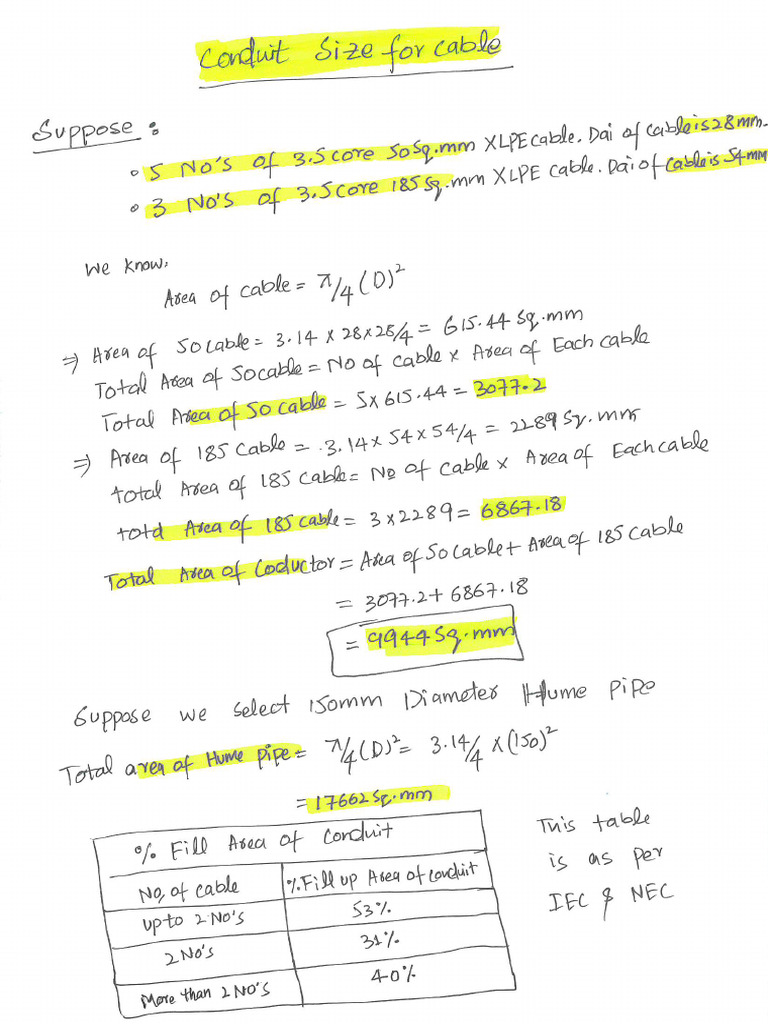 Conduit Size for cable
Suppose:
• 5 No's of 3.5 core 50Sq.mm XLPE cable. Dai of cable is 28 mm.
• 3 No's of 3.5 core 185 Sq.mm XLPE cable. Dai of cable is 54 mm
We know,
Area of cable = π/4 (D)²
⇒ Area of 50 cable = 3.14 x 28 x 28/4 = 615.44 Sq.mm
Total Area of 50 cable = No of cable x Area of Each cable
Total Area of 50 cable = 5x 615.44 = 3077.2
⇒ Area of 185 Cable = 3.14 x 54 x 54/4 = 2289 Sq. mm
total Area of 185 Cable = No of Cable x Area of Each cable
total Area of 185 cable = 3 x 2289 = 6867.18
Total Area of Coductor = Area of 50 cable + Area of 185 Cable
= 3077.2 + 6867.18
= 9944 Sq.mm
Suppose we select 150mm Diameter Hume pipe
Total area of Hume pipe = π/4 (D)² = 3.14/4 x (150)²
= 17662 Sq.mm
% Fill Area of Conduit
No, of cable %.Fill up Area of conduit
up to 2 No's 53%
2 No's 31%
More than 2 No's 40%
This table
is as per
IEC & NEC